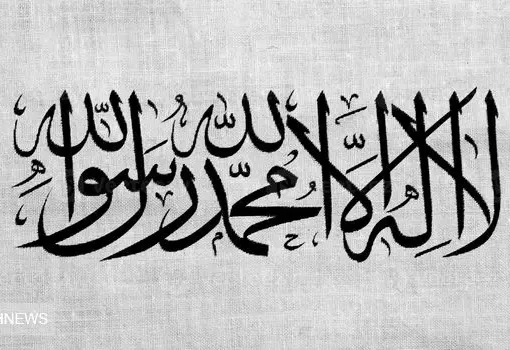 لا إله إلا الله محمد رسول الله
HNEWS